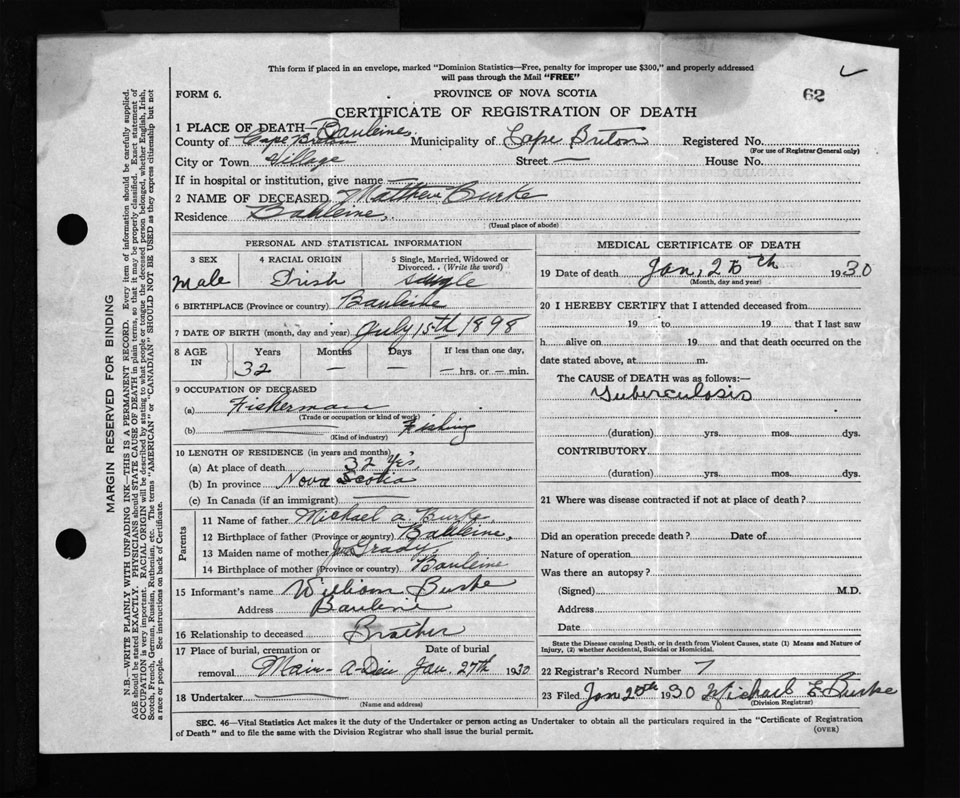 This form if placed in an envelope, marked "Dominion Statistics—Free, penalty for improper use $300," and properly addressed
will pass through the Mail "FREE"
FORM 6.
PROVINCE OF NOVA SCOTIA
62
CERTIFICATE OF REGISTRATION OF DEATH
1 PLACE OF DEATH— Bauleine
County of Cape Breton Municipality of Cape Breton Registered No.
(For use of Registrar General only)
City or Town Village Street — House No.
If in hospital or institution, give name —
2 NAME OF DECEASED Matthew Burke
Residence Bauleine
(Usual place of abode)
PERSONAL AND STATISTICAL INFORMATION
3 SEX 4 RACIAL ORIGIN 5 Single, Married, Widowed or
Divorced. . (Write the word)
Male Irish Single
6 BIRTHPLACE (Province or country) Bauleine
7 DATE OF BIRTH (month, day and year) July 15th 1898
8 AGE IN Years Months Days If less than one day,
32 — — — hrs. or — min.
9 OCCUPATION OF DECEASED
(a) Fisherman
(Trade or occupation or kind of work)
(b) Fishing
(Kind of industry)
10 LENGTH OF RESIDENCE (in years and months)
(a) At place of death 32 Yrs
(b) In province Nova Scotia
(c) In Canada (if an immigrant) —
Parents
11 Name of father Michael a Burke
12 Birthplace of father (Province or country) Bauleine
13 Maiden name of mother Grady
14 Birthplace of mother (Province or country) Bauleine
15 Informant's name William Burke
Address Bauleine
16 Relationship to deceased Brother
17 Place of burial, cremation or Date of burial
removal Main-A-Dieu Jan. 27th 1930
18 Undertaker —
(Name and address)
MEDICAL CERTIFICATE OF DEATH
19 Date of death Jan, 25th 1930
(Month, day and year)
20 I HEREBY CERTIFY that I attended deceased from
19 to 19 that I last saw
h alive on 19 and that death occurred on the
date stated above, at m.
The CAUSE of DEATH was as follows:—
Tuberculosis
(duration) yrs. mos. dys.
CONTRIBUTORY
(duration) yrs. mos. dys.
21 Where was disease contracted if not at place of death?
Did an operation precede death? Date of
Nature of operation
Was there an autopsy?
(Signed) M.D.
Address
Date
State the Disease causing Death, or in death from Violent Causes, state (1) Means and Nature of
Injury, (2) whether Accidental, Suicidal or Homicidal.
22 Registrar's Record Number 7
23 Filed Jan 1930 Michael E Burke
(Division Registrar)
SEC. 46—Vital Statistics Act makes it the duty of the Undertaker or person acting as Undertaker to obtain all the particulars required in the "Certificate of Registration
of Death" and to file the same with the Division Registrar who shall issue the burial permit.
(OVER)
MARGIN RESERVED FOR BINDING
N.B.—WRITE PLAINLY WITH UNFADING INK—THIS IS A PERMANENT RECORD. Every item of information should be carefully supplied.
AGE should be stated EXACTLY. PHYSICIANS should STATE CAUSE OF DEATH in plain terms, so that it may be properly classified. Exact statement of
OCCUPATION is very important. RACIAL ORIGIN will be described by stating to what people or tongue the deceased person belonged, whether English, Irish,
Scotch, French, German, Russian, Ruthenian, etc. The terms "AMERICAN" or "CANADIAN" SHOULD NOT BE USED as they express citizenship but not
a race or people. See instructions on back of Certificate.